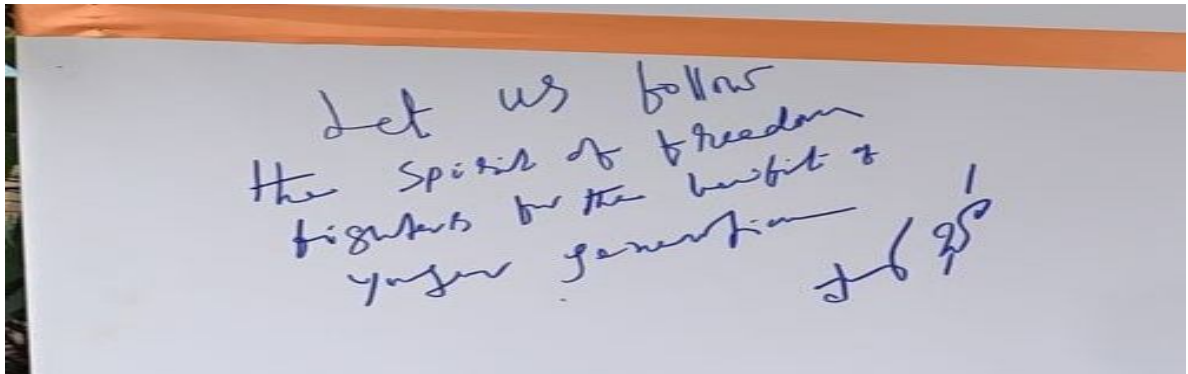 Let us follow
the spirit of freedom
fighters for the benifit of
younger generation